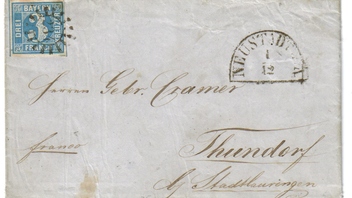 BAYERN
DREI
KREUZER
FRANCO
NEUSTADT
1
12
Herren Gebr. Cramer
Thundorf
franco
b/ Stadtlauringen